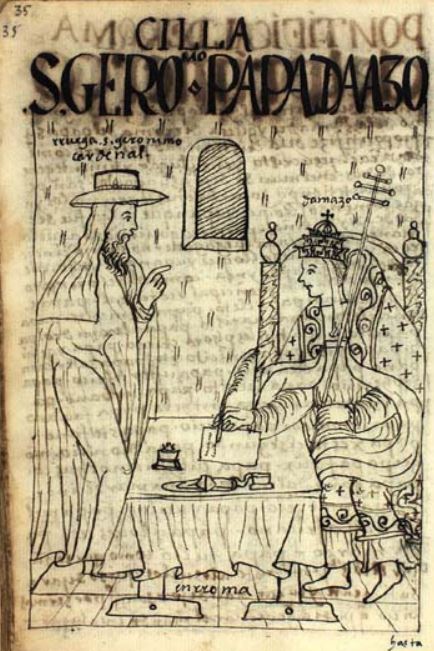 35
35
CILLA
S. GERO MO PAPA DAAZO
rruega. s. geronimo
cardenal
damazo
en rroma
hasta